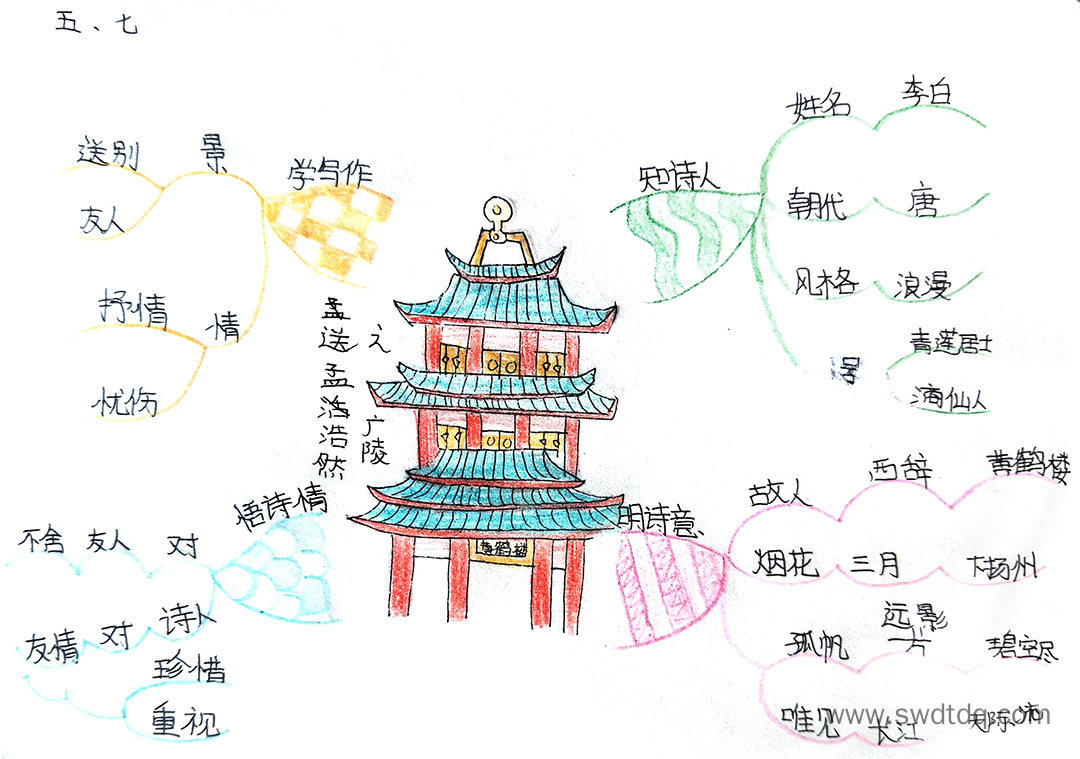 五、七
送别 景 学写作
友人
抒情 情
忧伤
知诗人
姓名 李白
朝代 唐
风格 浪漫
号
青莲居士
滴仙人
孟
送
孟
浩
浩
然
之
广
陵
黄鹤楼
悟诗情
不舍 友人 对
友情 对 诗人
珍惜
重视
明诗意
故人 西辞 黄鹤楼
烟花 三月 下扬州
孤帆 远影 碧空尽
片
唯见 长江 天际流
www.swdtdq.com